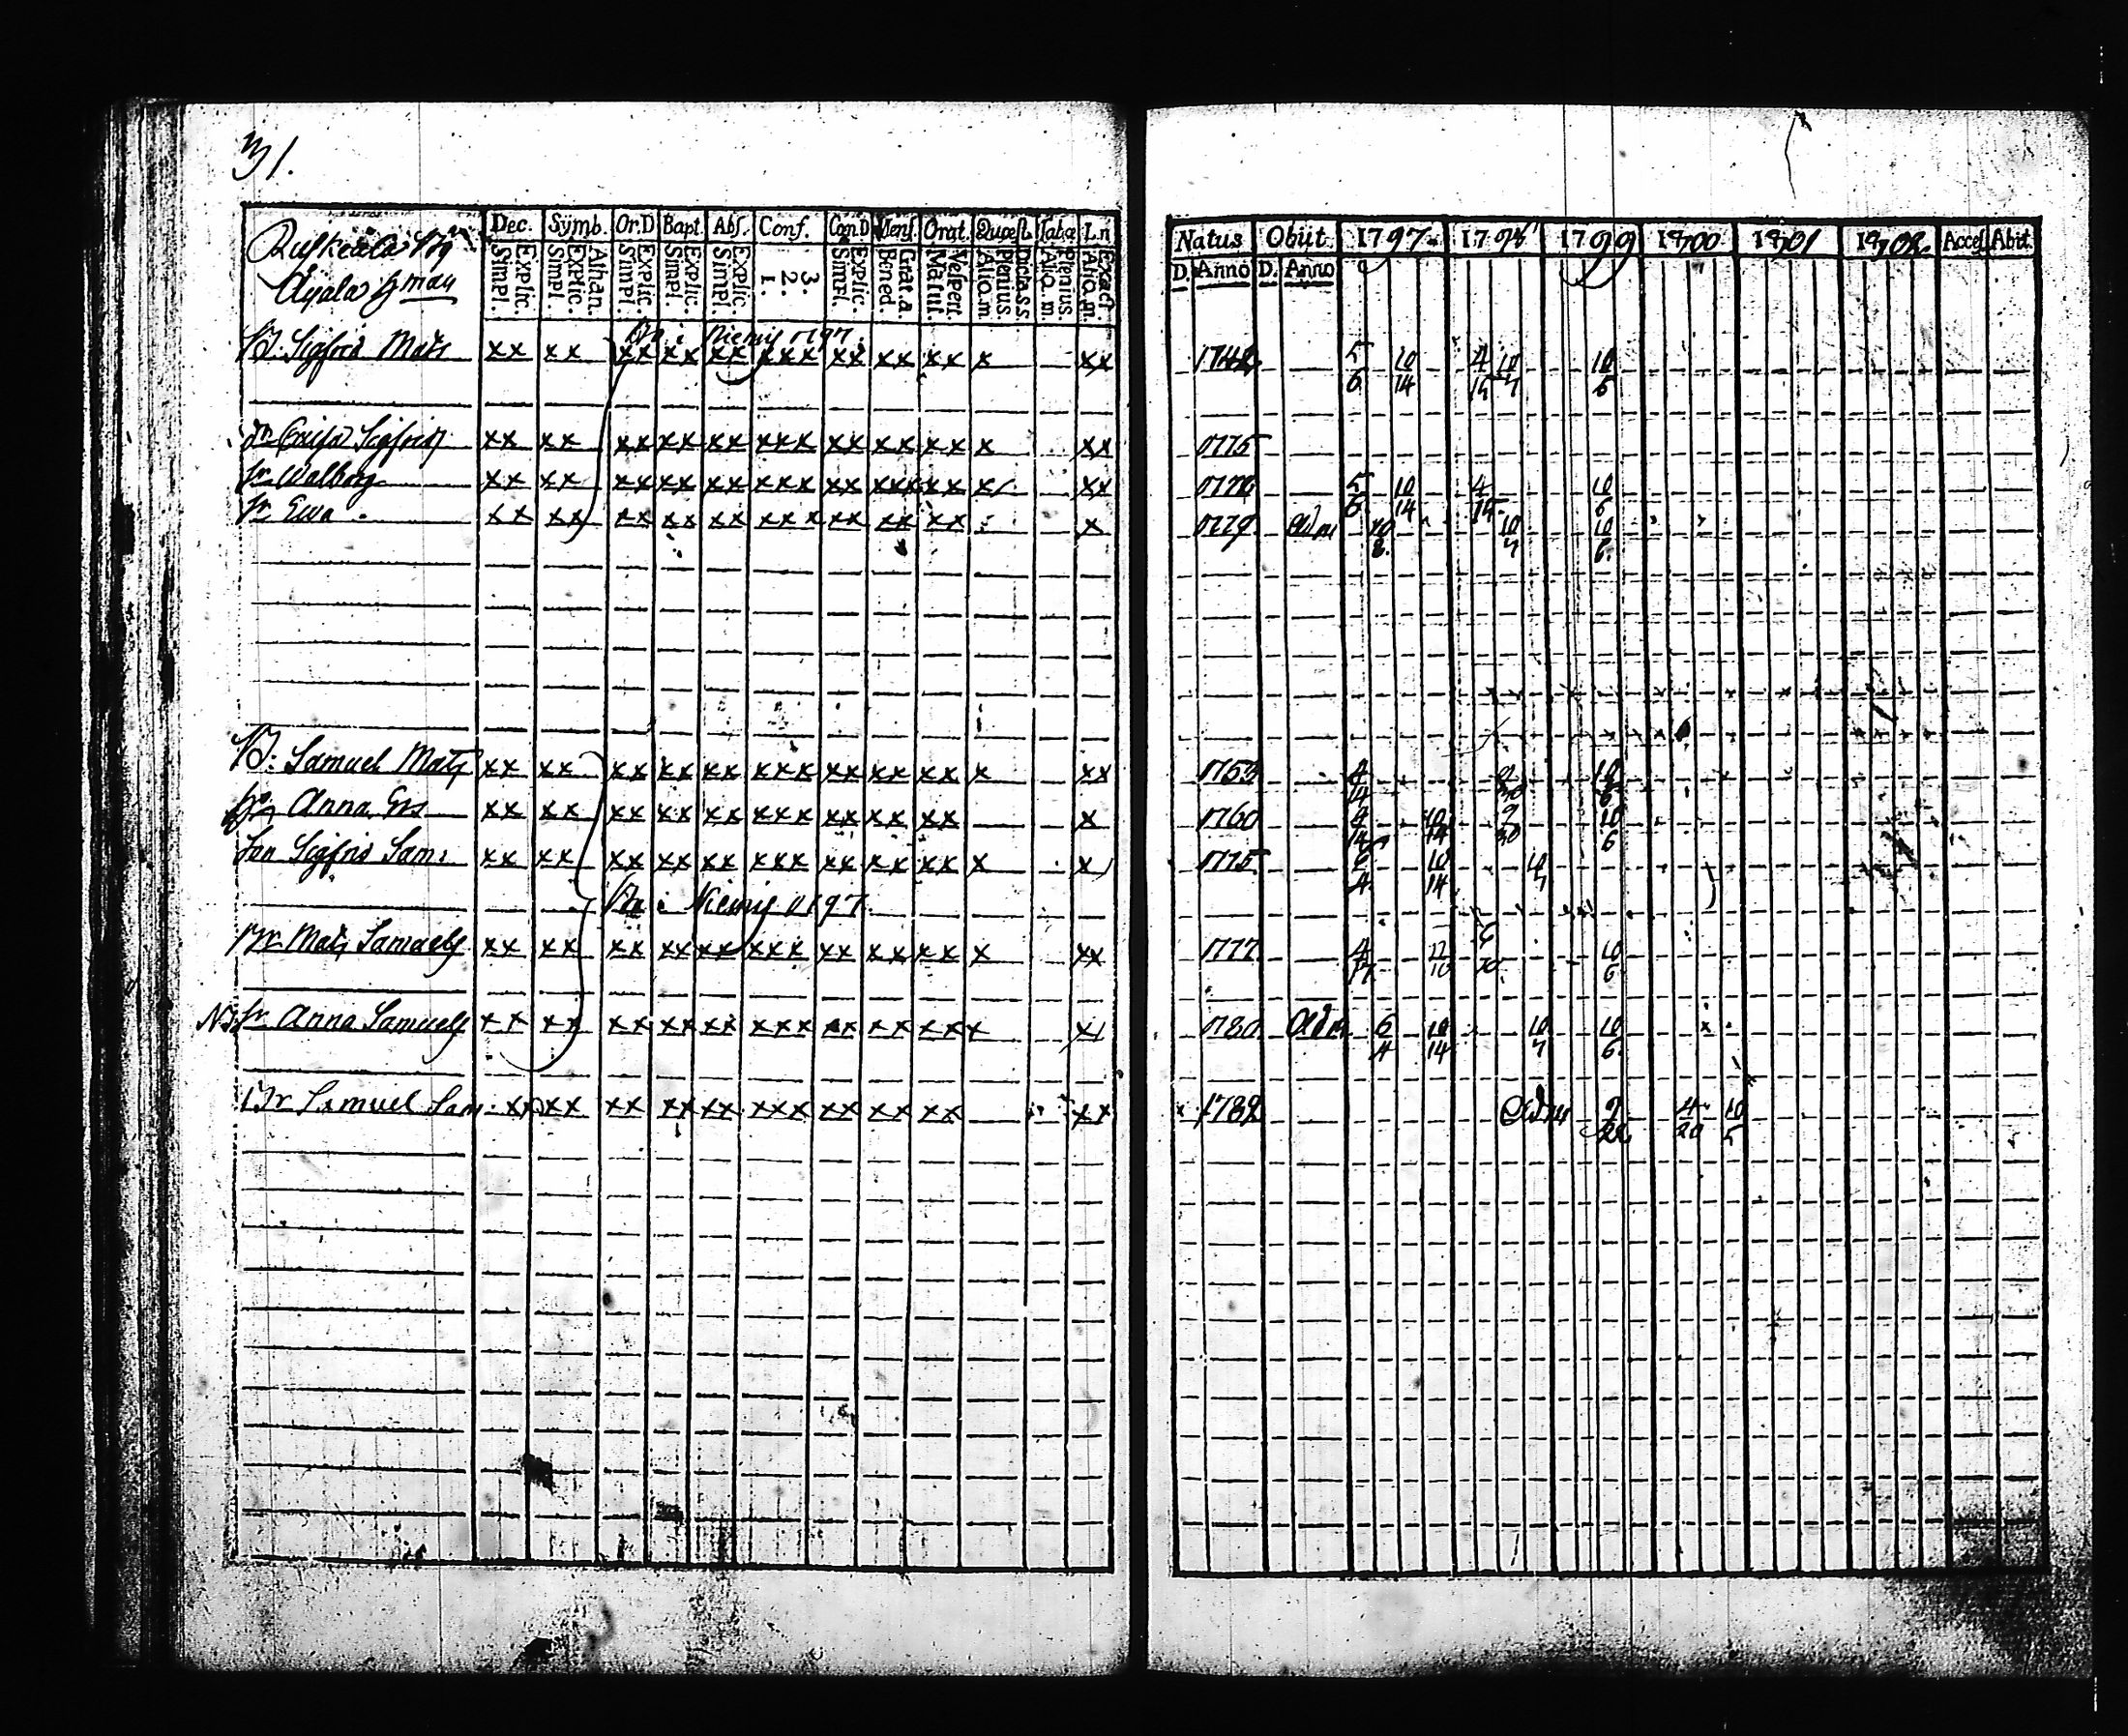 31.
Dec. Symb. Or.D Bapt. Abs. Conf. Can.D Mens. Orat. Quæst. Tabæ L.n
Explic. Simpl. Athan. Explic. Simpl. Explic. Simpl. Explic. Simpl. Explic. Simpl. 3. 2. 1. Explic. Simpl. Grat.a. Bened. Vespert. Matut. Dicta s.s. Plenius. Aliq.m. Plenius. Aliq.m. Exact. Aliq.m.
Natus Obiit. 1797. 1798 1799 1800 1801 1802. Acces. Abit.
D. Anno D. Anno
i Niemis 1797
B. Sigfrid Mats xx xx xx xx xx xxx xx xx xx x xx 1742 5/6 10/14 4/15 10/7 10/6
Sigfrids xx xx xx xx xx xxx xx xx xx x xx 1775
Walborg xx xx xx xx xx xxx xx xxx xx x xx 5/6 10/14 4/15 10/6
Ewa xx xx xx xx xx xxx xx xx xx x 1779 Adm 10/8 10/7 10/6
B. Samuel Mats xx xx xx xx xx xxx xx xx xx x xx 1753 4/14 9/30 10/6
Anna Ers xx xx xx xx xx xxx xx xx xx x 1760 4/14 10/14 9/30 10/6
Son Sigfrid Sam: xx xx xx xx xx xxx xx xx xx x x 1775 6/4 10/14 10/7
i Niemis 1797
Br Mats Samuels xx xx xx xx xx xxx xx xx xx x xx 1777 10/6
Sr Anna Samuels xx xx xx xx xx xxx xx xx xx x x 1780 Adm 6/4 10/14 10/7 10/6
Br Samuel Sam xx xx xx xx xx xxx xx xx xx xx 1782 Adm 4/20 10/5